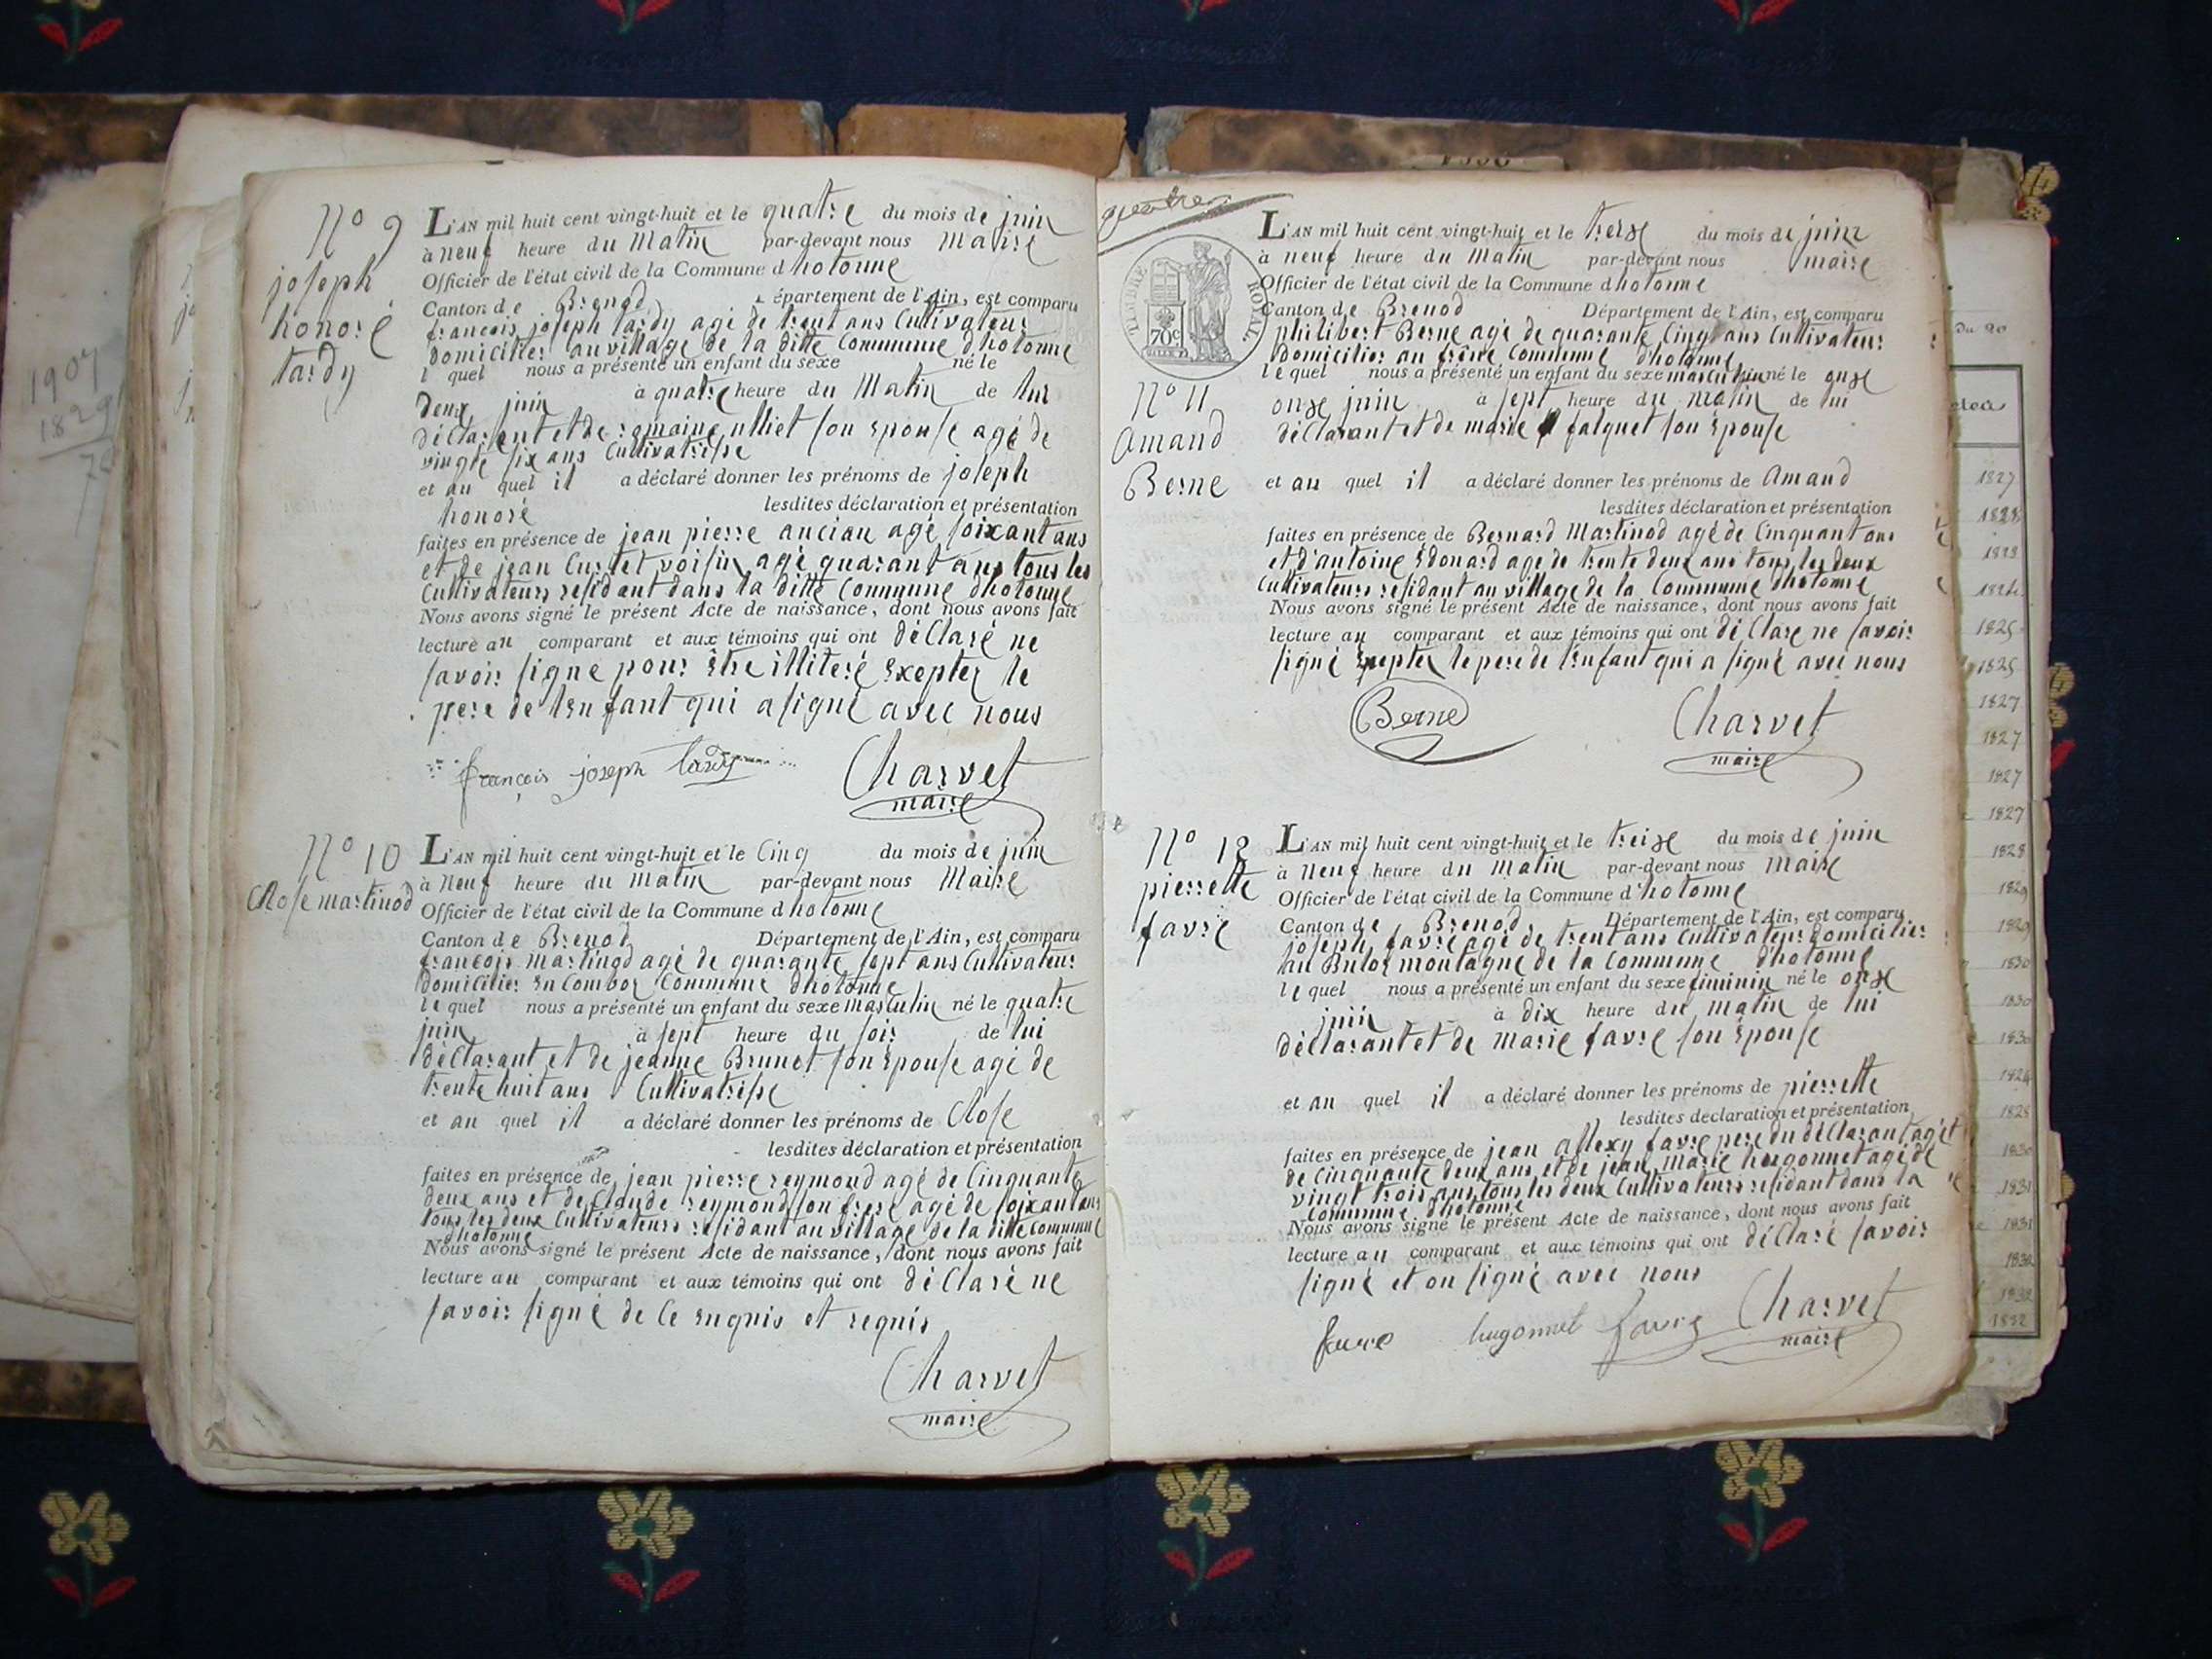 1907
1829
N° 9
joseph
honoré
tardy
L'AN mil huit cent vingt-huit et le quatre du mois de juin
à neuf heure du Matin par-devant nous Maire
Officier de l'état civil de la Commune d hotonne
Canton de Brenod épartement de l'Ain, est comparu
francois joseph tardy agé de trent ans Cultivateur
domicilier au village de la ditte Commune d'hotonne
l quel nous a présenté un enfant du sexe né le
deux juin à quatre heure du Matin de lui
déclarent et de romaine ulliet son Epouse agé de
vingte six ans Cultivatrisse
et au quel il a déclaré donner les prénoms de joseph
honoré lesdites déclaration et présentation
faites en présence de jean pierre ancian agé soixant ans
et de jean Curtet voisin agé quarant ans tous les
Cultivateurs residant dans la ditte Commune d'hotonne
Nous avons signé le présent Acte de naissance, dont nous avons fait
lecture au comparant et aux témoins qui ont déclaré ne
savoir signe pour Etre illiteré Exepter le
pere de lEnfant qui a signé avec nous
françois joseph tardy Charvet
maire
N° 10
Close martinod
L'AN mil huit cent vingt-huit et le Cinq du mois de juin
à Neuf heure du Matin par-devant nous Maire
Officier de l'état civil de la Commune d hotonne
Canton de Brenod Département de l'Ain, est comparu
francois martinod agé de quarante sept ans Cultivateur
domicilier En Combor Commune d'hotonne
le quel nous a présenté un enfant du sexe masculin né le quatre
juin à sept heure du soir de lui
déclarant et de jeanne Brunet son Epouse agé de
trente huit ans Cultivatrisse
et au quel il a déclaré donner les prénoms de Close
lesdites déclaration et présentation
faites en présence de jean pierre reymond agé de Cinquante
deux ans et de Claude reymond son frere agé de soixant ans
tous les deux Cultivateurs residant au village de la ditte Commune
d'hotonne
Nous avons signé le présent Acte de naissance, dont nous avons fait
lecture au comparant et aux témoins qui ont déclaré ne
savoir signé de Ce Enquis et requis
Charvet
maire
TIMBRE ROYAL
70c
N° 11
Amand
Berne
L'AN mil huit cent vingt-huit et le treise du mois de juin
à neuf heure du Matin par-devant nous maire
Officier de l'état civil de la Commune d hotonne
Canton de Brenod Département de l'Ain, est comparu
philibert Berne agé de quarante Cinq ans Cultivateur
domicilier au Commune d'hotonne
le quel nous a présenté un enfant du sexe masculin né le onse
onse juin à sept heure du matin de lui
déclarant et de marie falquet son Epouse
et au quel il a déclaré donner les prénoms de Amand
lesdites déclaration et présentation
faites en présence de Bernard Martinod agé de Cinquant ans
et d'antoine Edouard age de trente deux ans tous les deux
Cultivateurs residant au village de la Commune d'hotonne
Nous avons signé le présent Acte de naissance, dont nous avons fait
lecture au comparant et aux témoins qui ont déClare ne savoir
signé Exepter le pere de lEnfant qui a signé avec nous
Berne Charvet
maire
N° 12
pierrette
favre
L'AN mil huit cent vingt-huit et le treise du mois de juin
à neuf heure du matin par-devant nous maire
Officier de l'état civil de la Commune d'hotonne
Canton de Brenod Département de l'Ain, est comparu
joseph favre agé de trent ans Cultivateur domicilier
au montagne de la Commune d'hotonne
le quel nous a présenté un enfant du sexe féminin né le onse
juin à dix heure du matin de lui
déclarant et de marie favre son Epouse
et au quel il a déclaré donner les prénoms de pierrette
lesdites declaration et présentation
faites en présence de jean allexy favre pere du déclarant agét
de Cinquante deux ans et de jean marie hugonnet agé de
vingt trois ans tous les deux Cultivateurs residant dans la
Commune d'hotonne
Nous avons signé le présent Acte de naissance, dont nous avons fait
lecture au comparant et aux témoins qui ont déclaré savoir
signé et on signé avec nous
favre hugonnet favre Charvet
maire
du 20
1827
1828
1828
1824
1825
1825
1827
1827
1827
1827
1828
1829
1829
1830
1830
1830
1824
1828
1830
1831
1831
1832
1832
1832